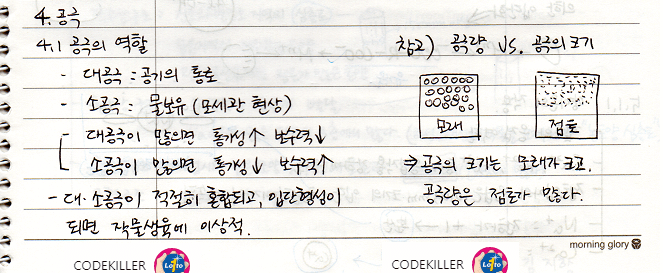 4. 공극
4.1 공극의 역할
- 대공극 : 공기의 통로
- 소공극 : 물보유 (모세관 현상)
- 대공극이 많으면 통기성↑ 보수력↓
소공극이 많으면 통기성↓ 보수력↑
- 대·소공극이 적절히 혼합되고, 입단형성이
되면 작물생육에 이상적.
참고) 공극량 VS. 공극의 크기
모래 점토
⇒ 공극의 크기는 모래가 크고,
공극량은 점토가 많다.
morning glory
CODEKILLER Lotto
CODEKILLER Lotto